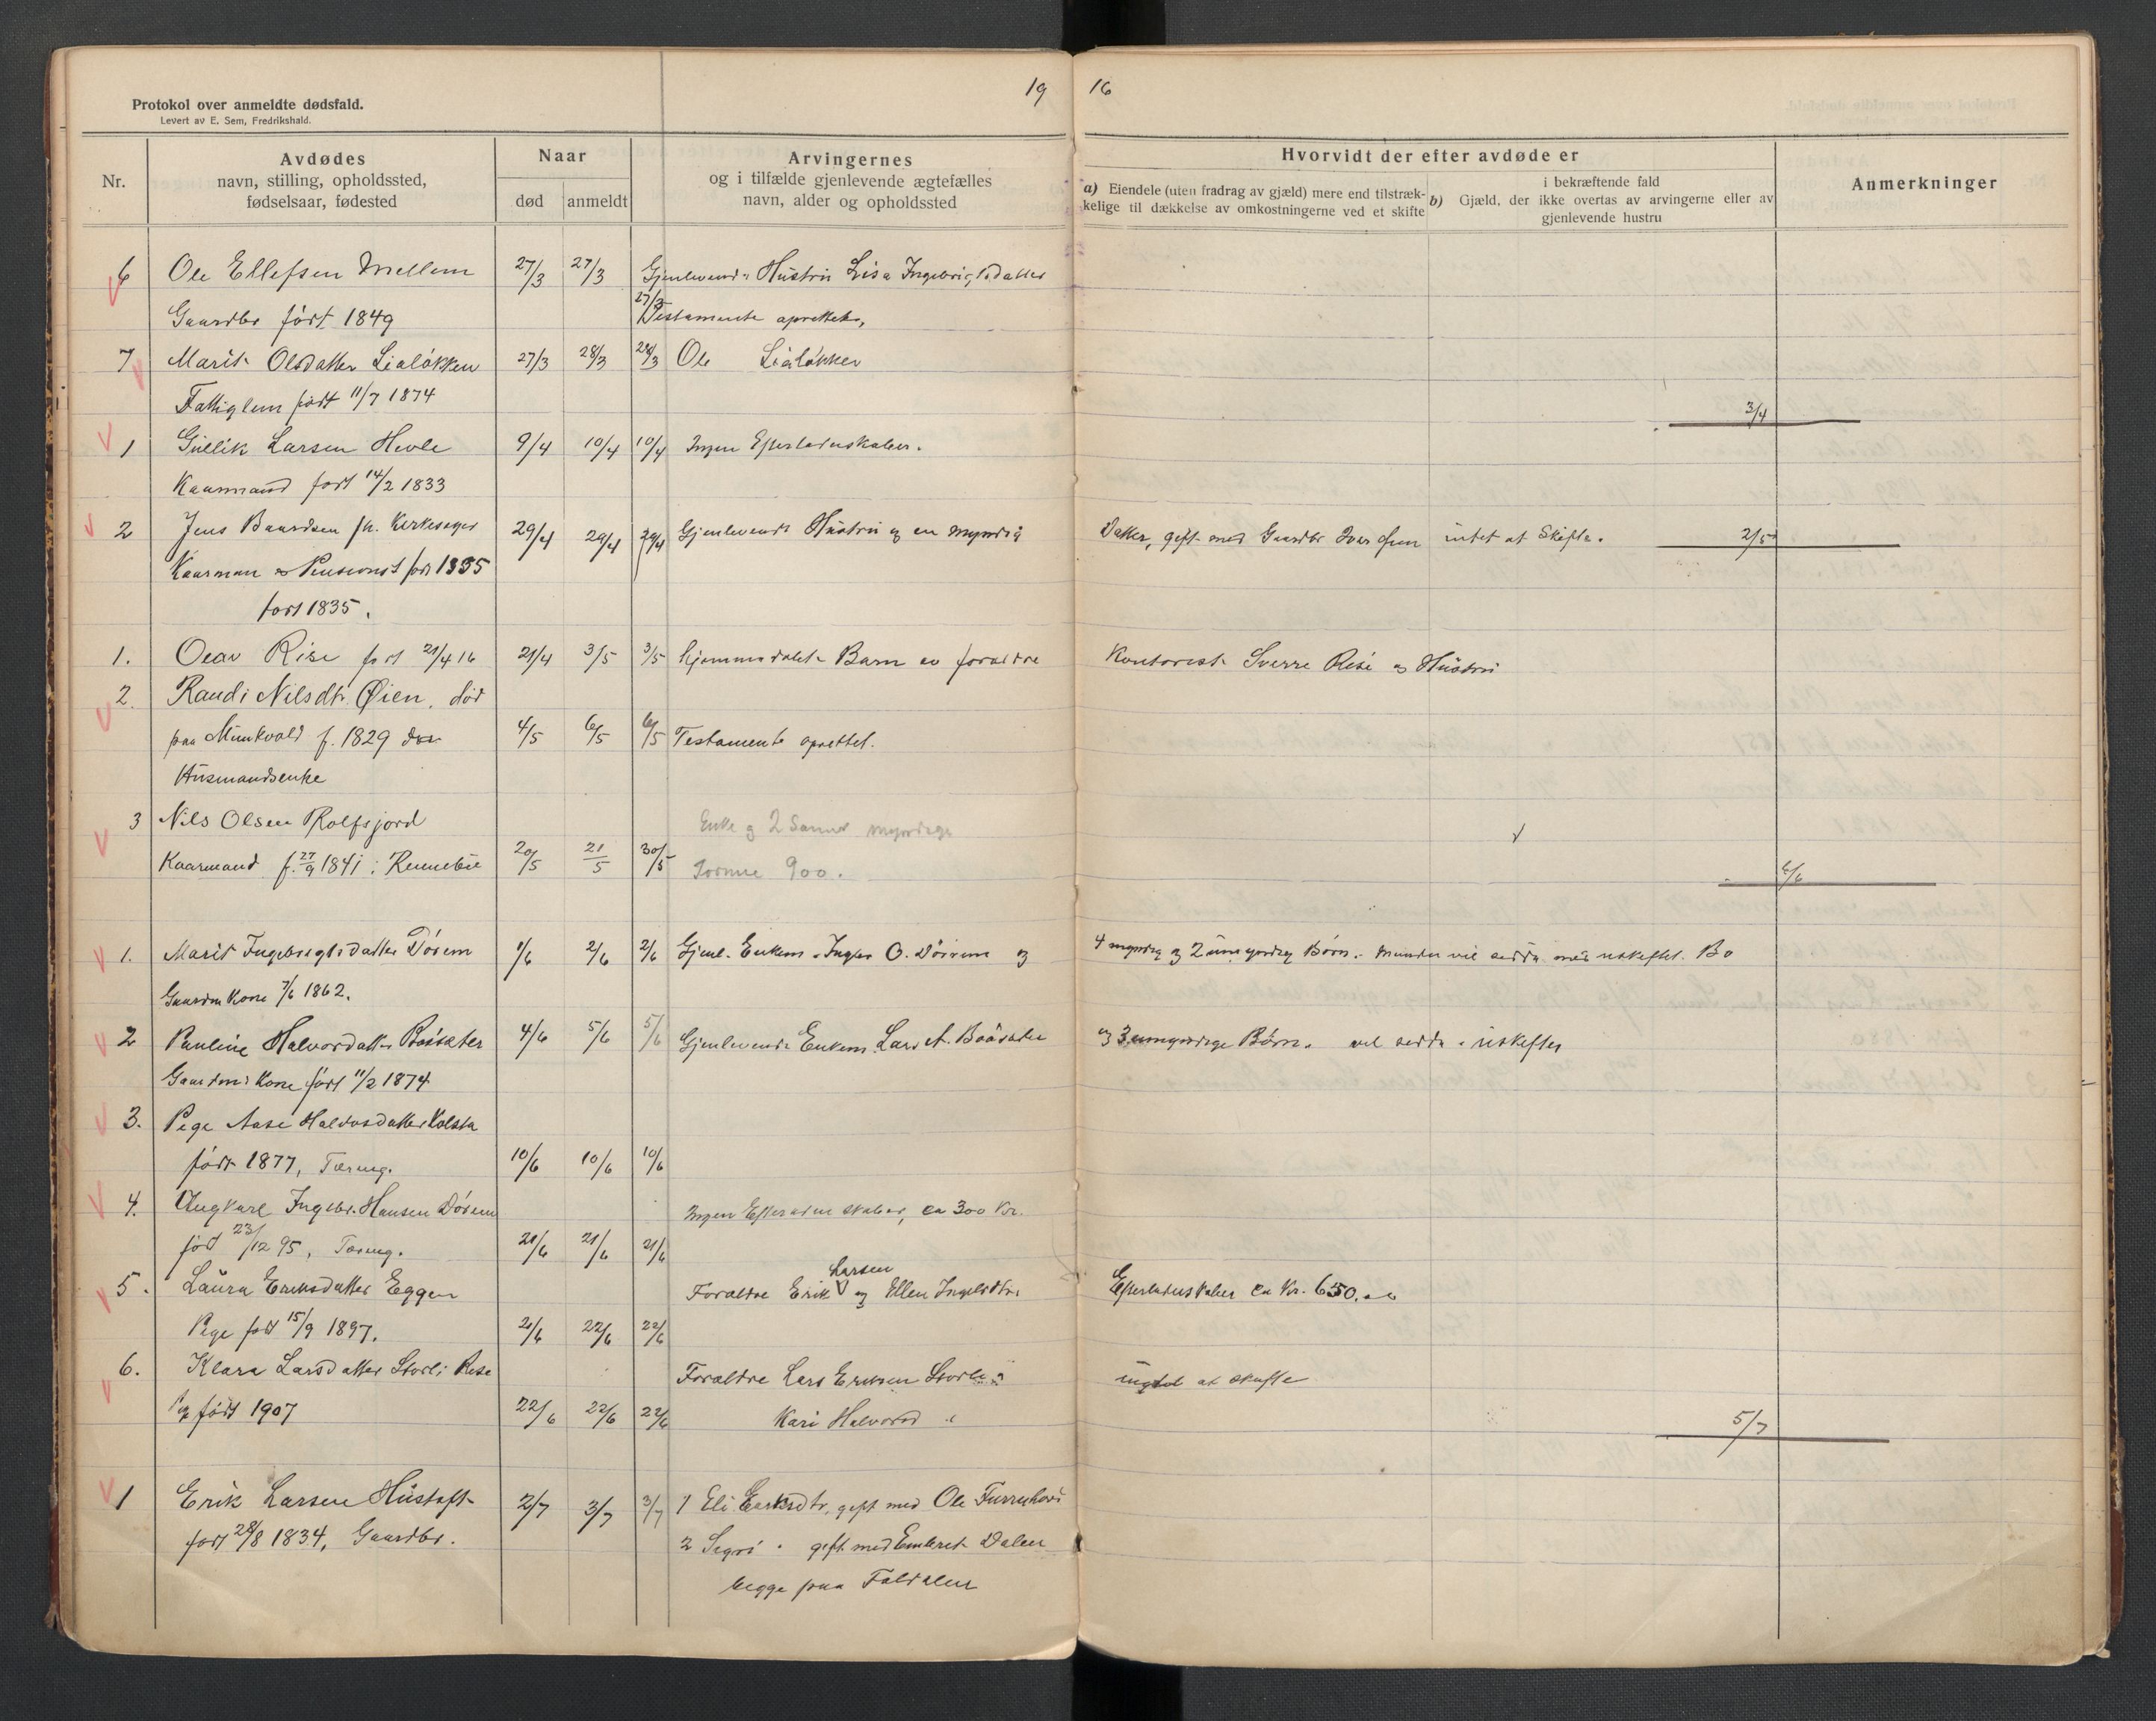 19 16
Protokol over anmeldte dødsfald.
Levert av E. Sem, Fredrikshald.
Nr.
Avdødes
navn, stilling, opholdssted,
fødselsaar, fødested
Naar
død anmeldt
Arvingernes
og i tilfælde gjenlevende ægtefælles
navn, alder og opholdssted
Hvorvidt der efter avdøde er
a) Eiendele (uten fradrag av gjæld) mere end tilstræk-
kelige til dækkelse av omkostningerne ved et skifte
i bekræftende fald
b) Gjæld, der ikke overtas av arvingerne eller av
gjenlevende hustru
Anmerkninger
6 Ole Ellefsen Mellem 27/3 27/3 Gjenlevende Hustru Lisa Ingebrigtsdatter
27/3
Gaardbr født 1849 Testamente oprettet,
7 Marit Olsdatter Lialøkken 27/3 28/3 28/3 Ole Lialøkken
Fattiglem født 11/7 1874
3/4
1 Gullik Larsen Hevle 9/4 10/4 10/4 Ingen Efterladenskaber.
Kaarmand født 14/2 1833
2 Jens Baardsen fh. Kirkesanger 29/4 29/4 29/4 Gjenlevende Hustru og en myndig Datter, gift med Gaardbr Ivar intet at Skifte. 2/5
Kaarman og Pensionist 1835
født 1835.
1. Olav Rise født 21/4 16 21/4 3/5 3/5 hjemmedøbt Barn av forældre Kontorist Sverre Rise og Hustru
2. Randi Nilsdtr. Øien, død
paa Munkvold f. 1829 4/5 6/5 6/5 Testamente oprettet.
Husmandsenke
3 Nils Olsen Rolfsjord Enke og 2 Sønner myndige
Kaarmand f. 27/9 1841 i Rennebu 20/5 21/5 30/5 Formue 900.
6/6
1. Marit Ingebrigtsdatter Dørem 1/6 2/6 2/6 Gjenl. Enkem. Ingbr O. Dørrem og 4 myndig og 2 umyndig Børn. Manden vil sidde med uskiftet Bo
Gaardm Kone 7/6 1862.
2 Pauline Halvordatter Bøsæter 4/6 5/6 5/6 Gjenlevende Enkem. Lars A. Bøsæter og 3 umyndige Børn. vil sidde i uskiftet
Gaardm: Kone født 11/2 1874
3. Pige Aase Halvorsdatter Kolsta
født 1877, Tæring. 10/6 10/6 10/6
4. Ungkarl Ingebr. Hansen Dørem Ingen Efterladenskaber, ca 300 Kr.
født 23/12 95, Tæring. 21/6 21/6 21/6
5. Laura Eriksdatter Eggen Forældre Erik Larsen og Ellen Ingebrdtr. Efterladenskaber ca Kr. 650.
Pige født 15/9 1897. 21/6 22/6 22/6
6. Klara Larsdatter Storli Rise Forældre Lars Eriksen Storli og intet at skifte
Pige født 1907 22/6 22/6 22/6 Kari Halvorsd "
5/7
1 Erik Larsen Hustoft 2/7 3/7 3/7 1 Eli Eriksdtr, gift med Ole Furruhovd
født 28/8 1834, Gaardbr. 2 Sigri " gift med Embret Dalen
begge paa Foldalen